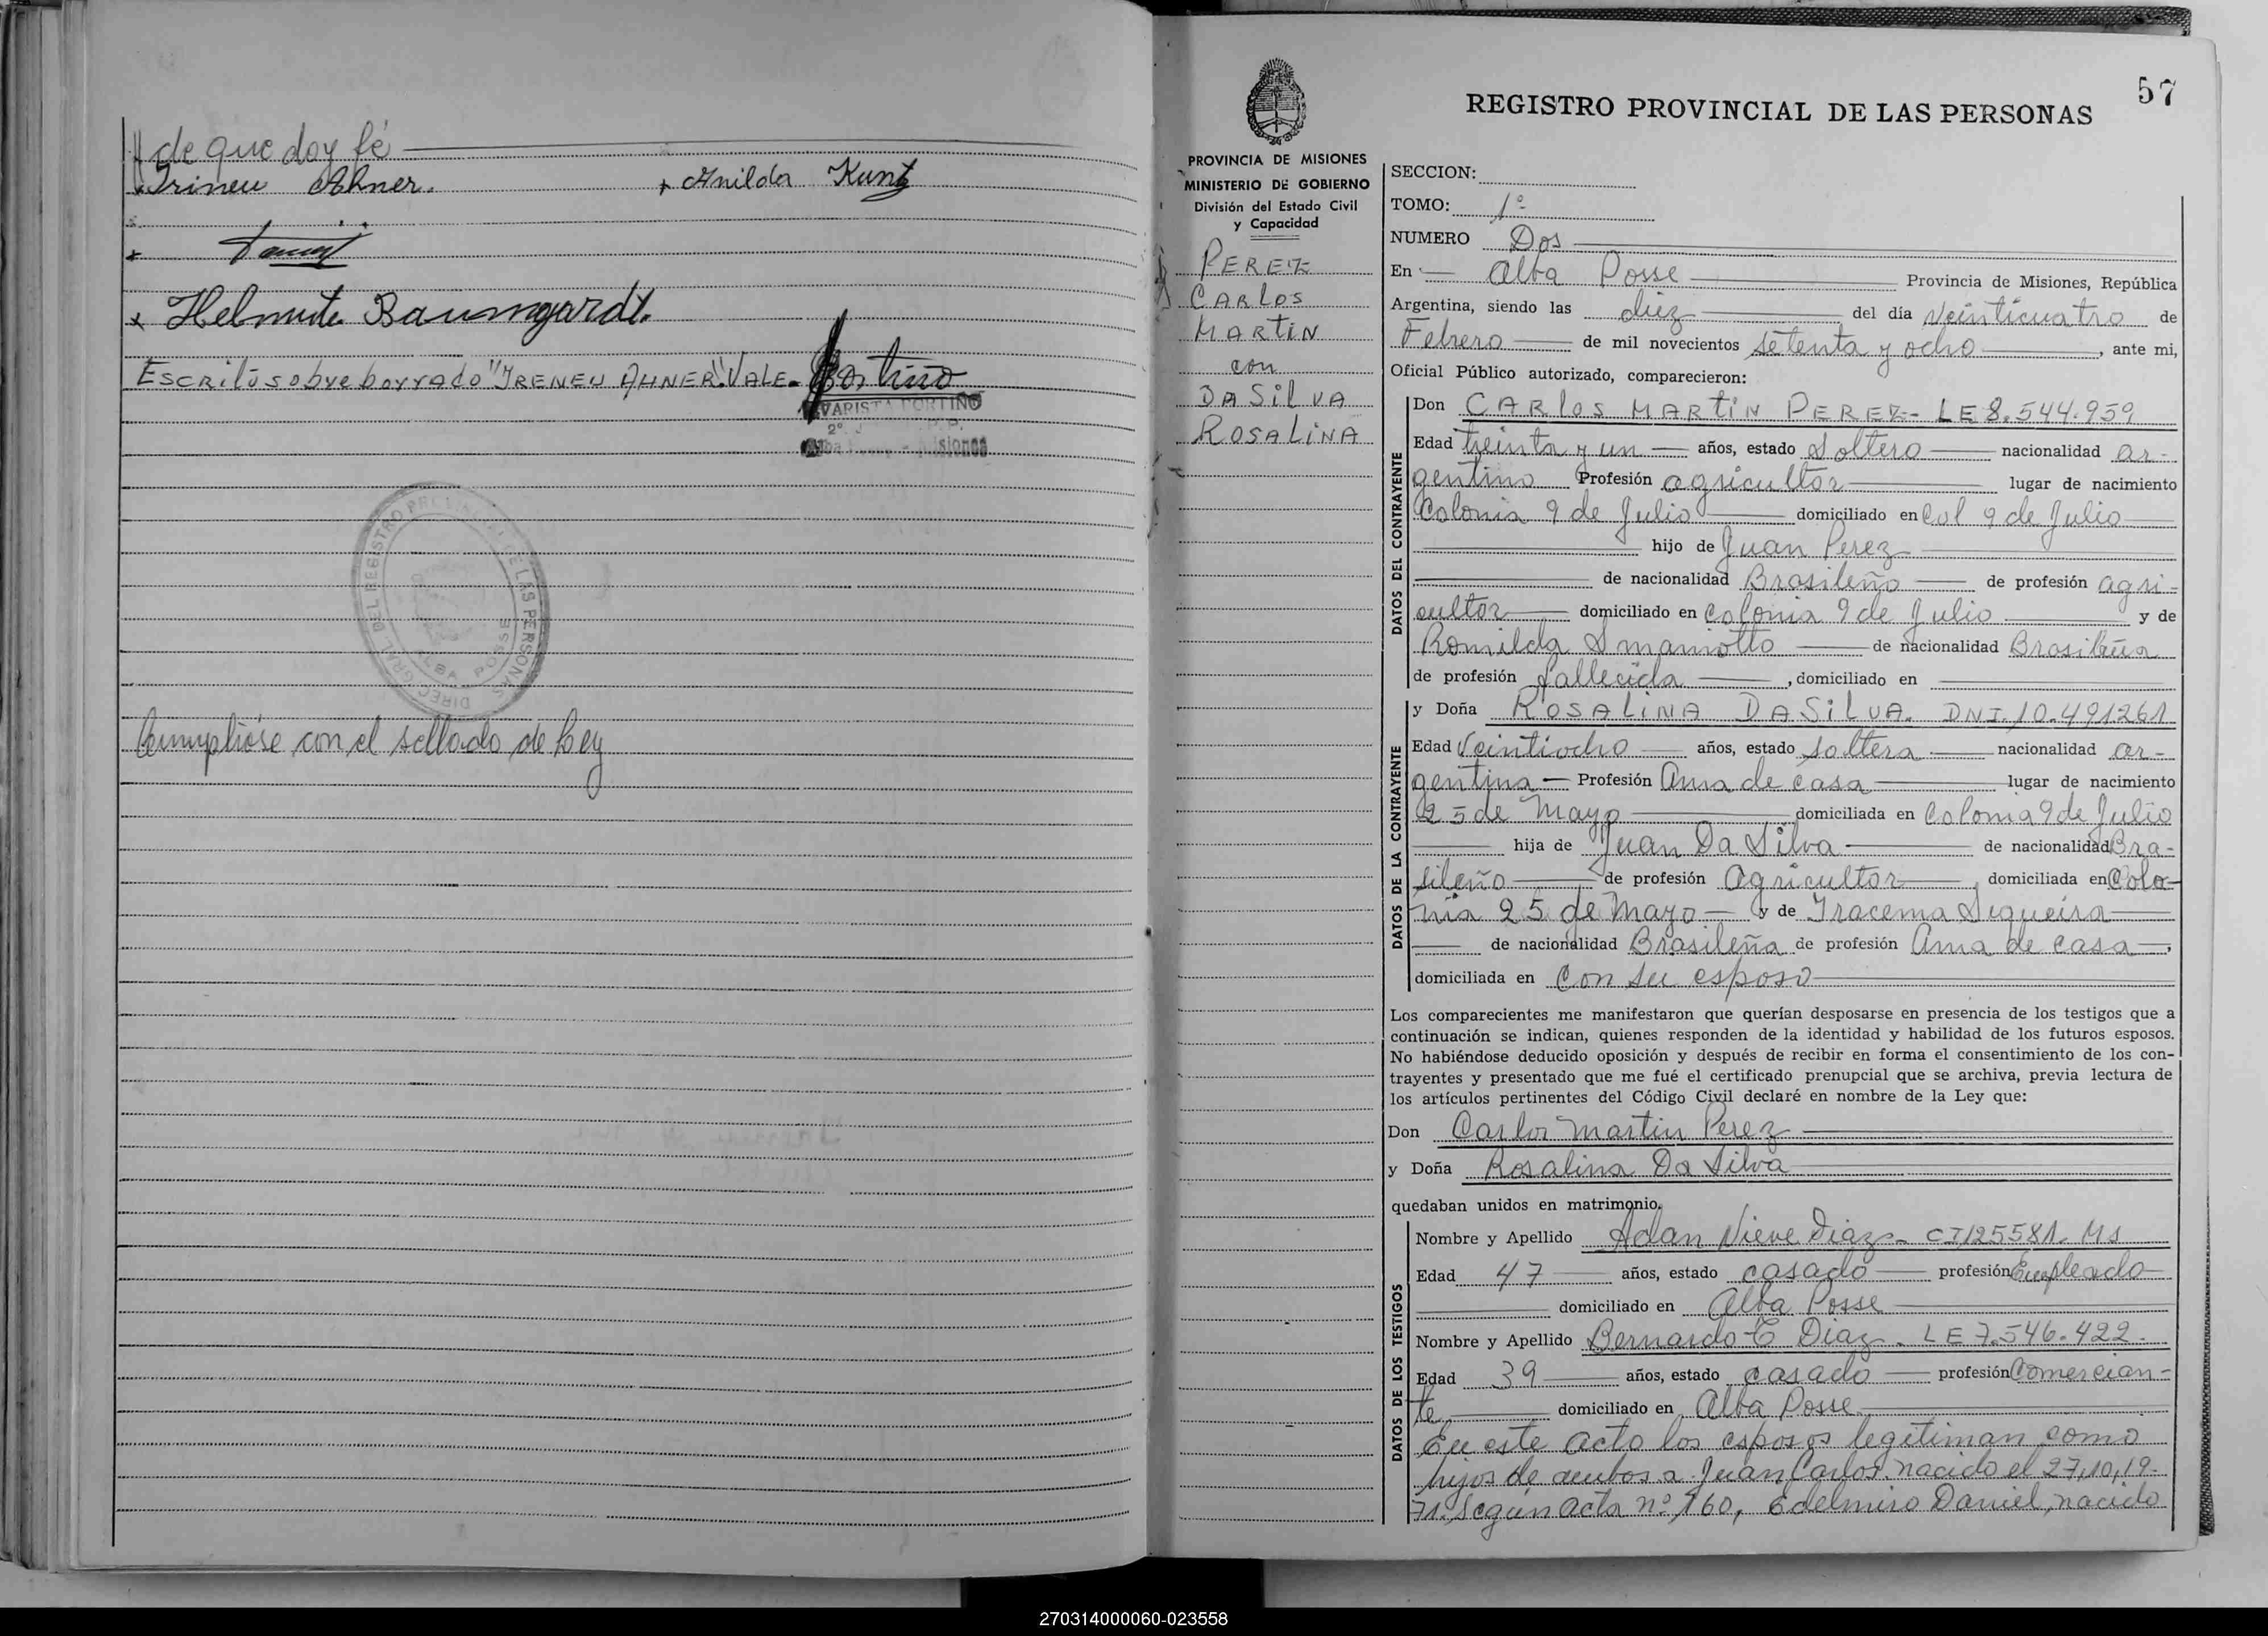 de que doy fé
Irineu Ahner.
x Anilda Kunz
x
x Helmute Baumgardt.
Escrito sobre borrado "IRENEU AHNER". VALE.
EVARISTA PORTIÑO
DIREC. GRAL. DEL REGISTRO PROVINCIAL DE LAS PERSONAS
ALBA POSSE
Cumplióse con el sellado de Ley
57
REGISTRO PROVINCIAL DE LAS PERSONAS
PROVINCIA DE MISIONES
MINISTERIO DE GOBIERNO
División del Estado Civil
y Capacidad
PEREZ
CARLOS
MARTIN
con
DA SILVA
ROSALINA
SECCION:
TOMO: 1º
NUMERO Dos
En Alba Posse Provincia de Misiones, República
Argentina, siendo las diez del día veinticuatro de
Febrero de mil novecientos setenta y ocho, ante mi,
Oficial Público autorizado, comparecieron:
DATOS DEL CONTRAYENTE
Don CARLOS MARTIN PEREZ- LE 8.544.959
Edad treinta y un años, estado soltero nacionalidad ar-
gentino Profesión agricultor lugar de nacimiento
Colonia 9 de Julio domiciliado en Col 9 de Julio
hijo de Juan Perez
de nacionalidad Brasileño de profesión agri-
cultor domiciliado en Colonia 9 de Julio y de
Romilda Smaniotto de nacionalidad Brasileña
de profesión fallecida, domiciliado en
DATOS DE LA CONTRAYENTE
y Doña ROSALINA DA SILVA. DNI. 10.491261
Edad Veintiocho años, estado soltera nacionalidad ar-
gentina Profesión Ama de casa lugar de nacimiento
25 de Mayo domiciliada en Colonia 9 de Julio
hija de Juan Da Silva de nacionalidad Bra-
sileño de profesión Agricultor, domiciliada en Colo-
nia 25 de Mayo y de Iracema Siqueira
de nacionalidad Brasileña de profesión Ama de casa,
domiciliada en Con su esposo
Los comparecientes me manifestaron que querían desposarse en presencia de los testigos que a
continuación se indican, quienes responden de la identidad y habilidad de los futuros esposos.
No habiéndose deducido oposición y después de recibir en forma el consentimiento de los con-
trayentes y presentado que me fué el certificado prenupcial que se archiva, previa lectura de
los artículos pertinentes del Código Civil declaré en nombre de la Ley que:
Don Carlos Martin Perez
y Doña Rosalina Da Silva
quedaban unidos en matrimonio.
DATOS DE LOS TESTIGOS
Nombre y Apellido Adan Nieve Diaz- CI 125581. Ms
Edad 47 años, estado casado profesión Empleado
domiciliado en Alba Posse
Nombre y Apellido Bernardo C Diaz - LE 7.546.422.
Edad 39 años, estado casado profesión Comercian-
te domiciliado en Alba Posse
En este acto los esposos legitiman como
hijos de ambos a Juan Carlos. nacido el 27,10,19-
71. Según acta nº 160, Edelmiro Daniel, nacido
270314000060-023558